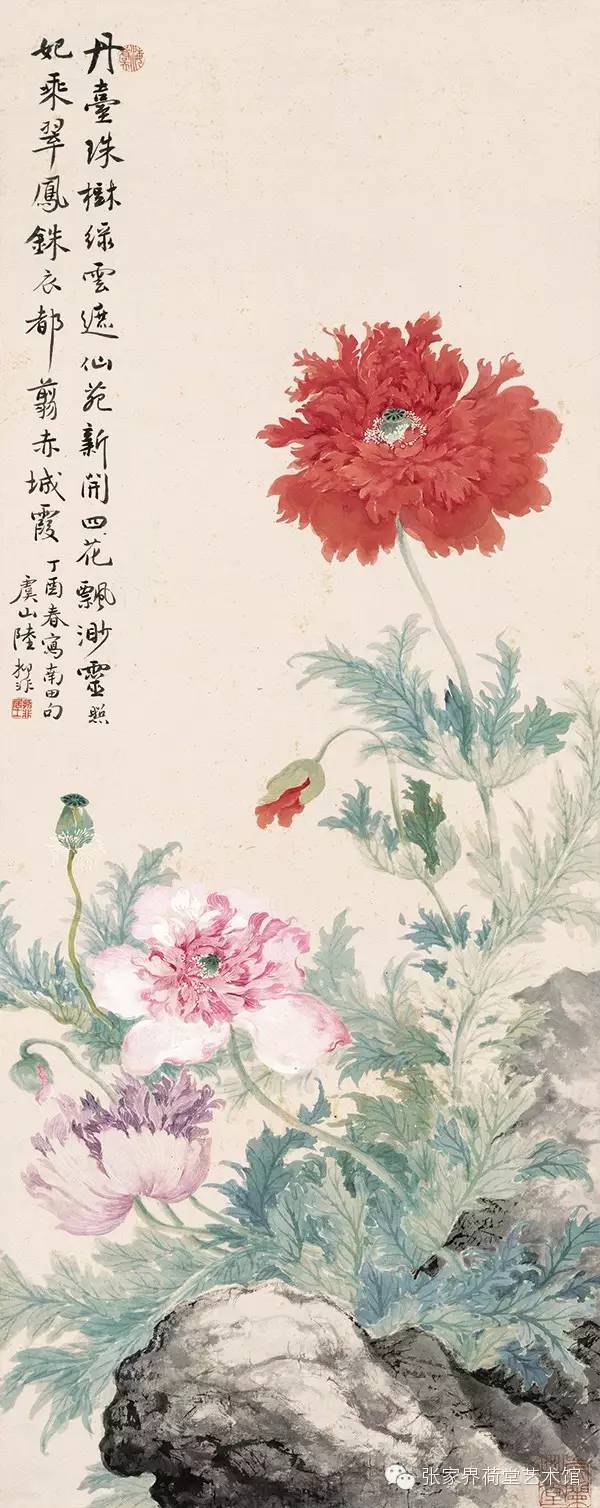 丹臺珠樹綠雲遮仙苑新開四花飄渺靈照
妃乘翠鳳銖衣都翦赤城霞
丁酉春寫南田句
虞山陸抑非
抑非居士
张家界荷堂艺术馆